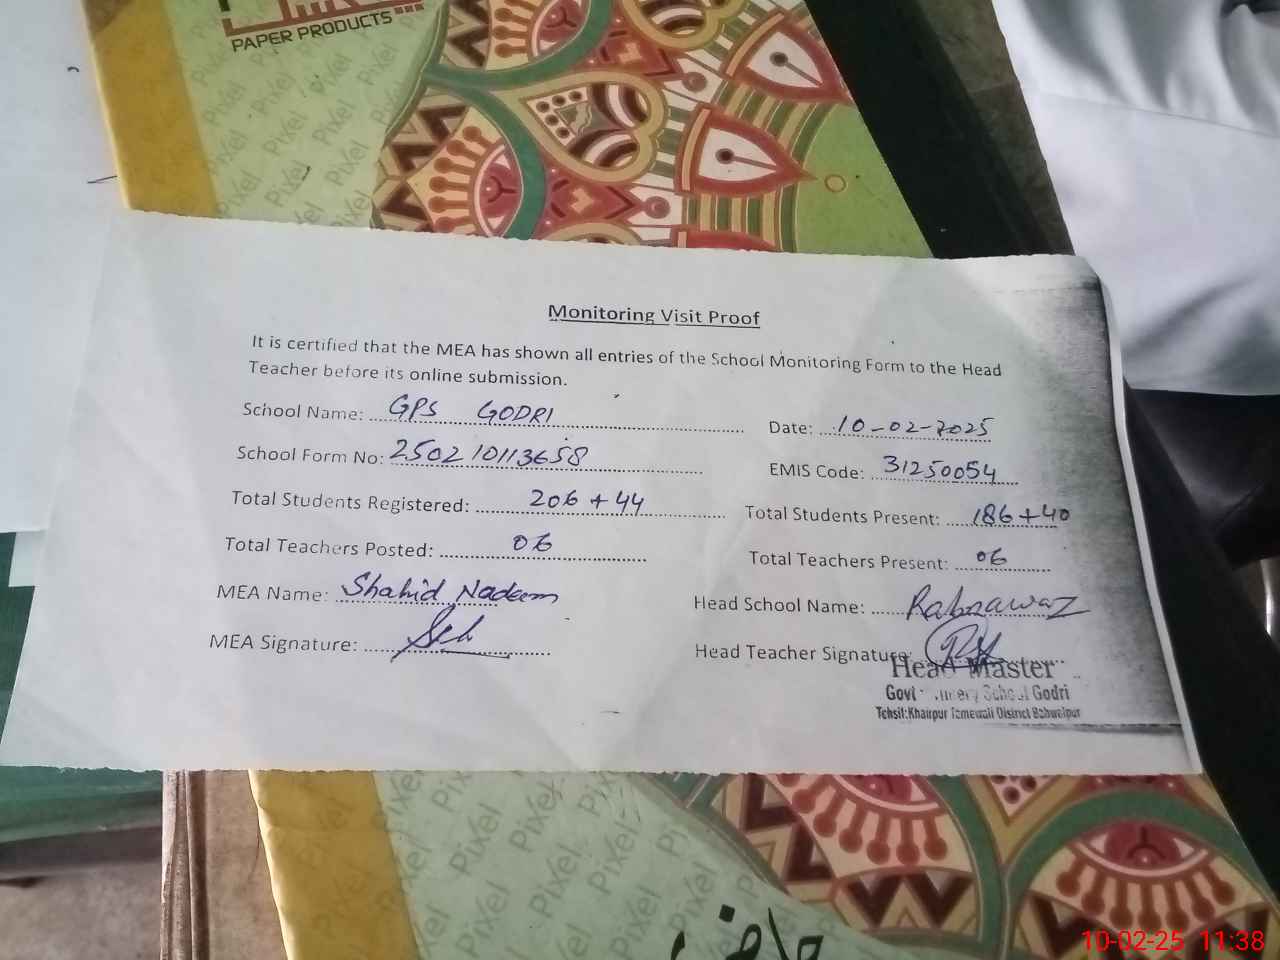 PAPER PRODUCTS
Monitoring Visit Proof
It is certified that the MEA has shown all entries of the School Monitoring Form to the Head
Teacher before its online submission.
School Name: GPS GODRI
Date: 10-02-2025
School Form No: 250210113658
EMIS Code: 31250054
Total Students Registered: 206 + 44
Total Students Present: 186 + 40
Total Teachers Posted: 06
Total Teachers Present: 06
MEA Name: Shahid Nadeem
Head School Name: Rabnawaz
MEA Signature:
Head Teacher Signature:
Head Master
Govt School Godri
Tehsil: Khairpur Tamewali District Bahwalpur
Pixel Pixel Pixel Pixel
10-02-25 11:38